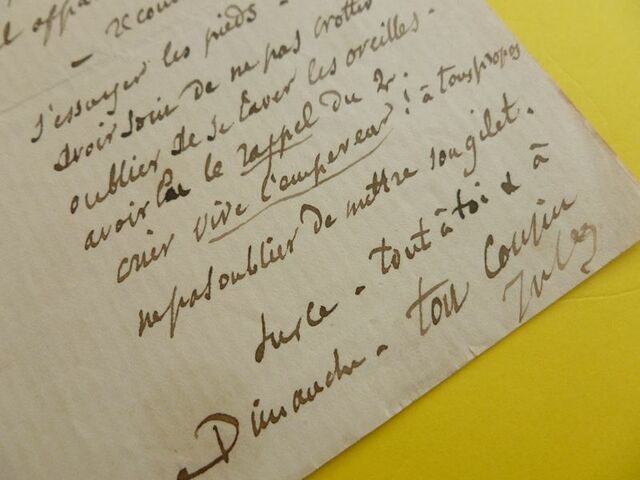 l appa
- recou
s'essuyer les pieds -
avoir soin de ne pas crotter
oublier de se laver les oreilles.
avoir lu le rappel du 2.
crier vive l'empereur! à tous propos
ne pas oublier de mettre son gilet.
sur ce - tout à toi & à
Dimanche - ton Cousin
Jules